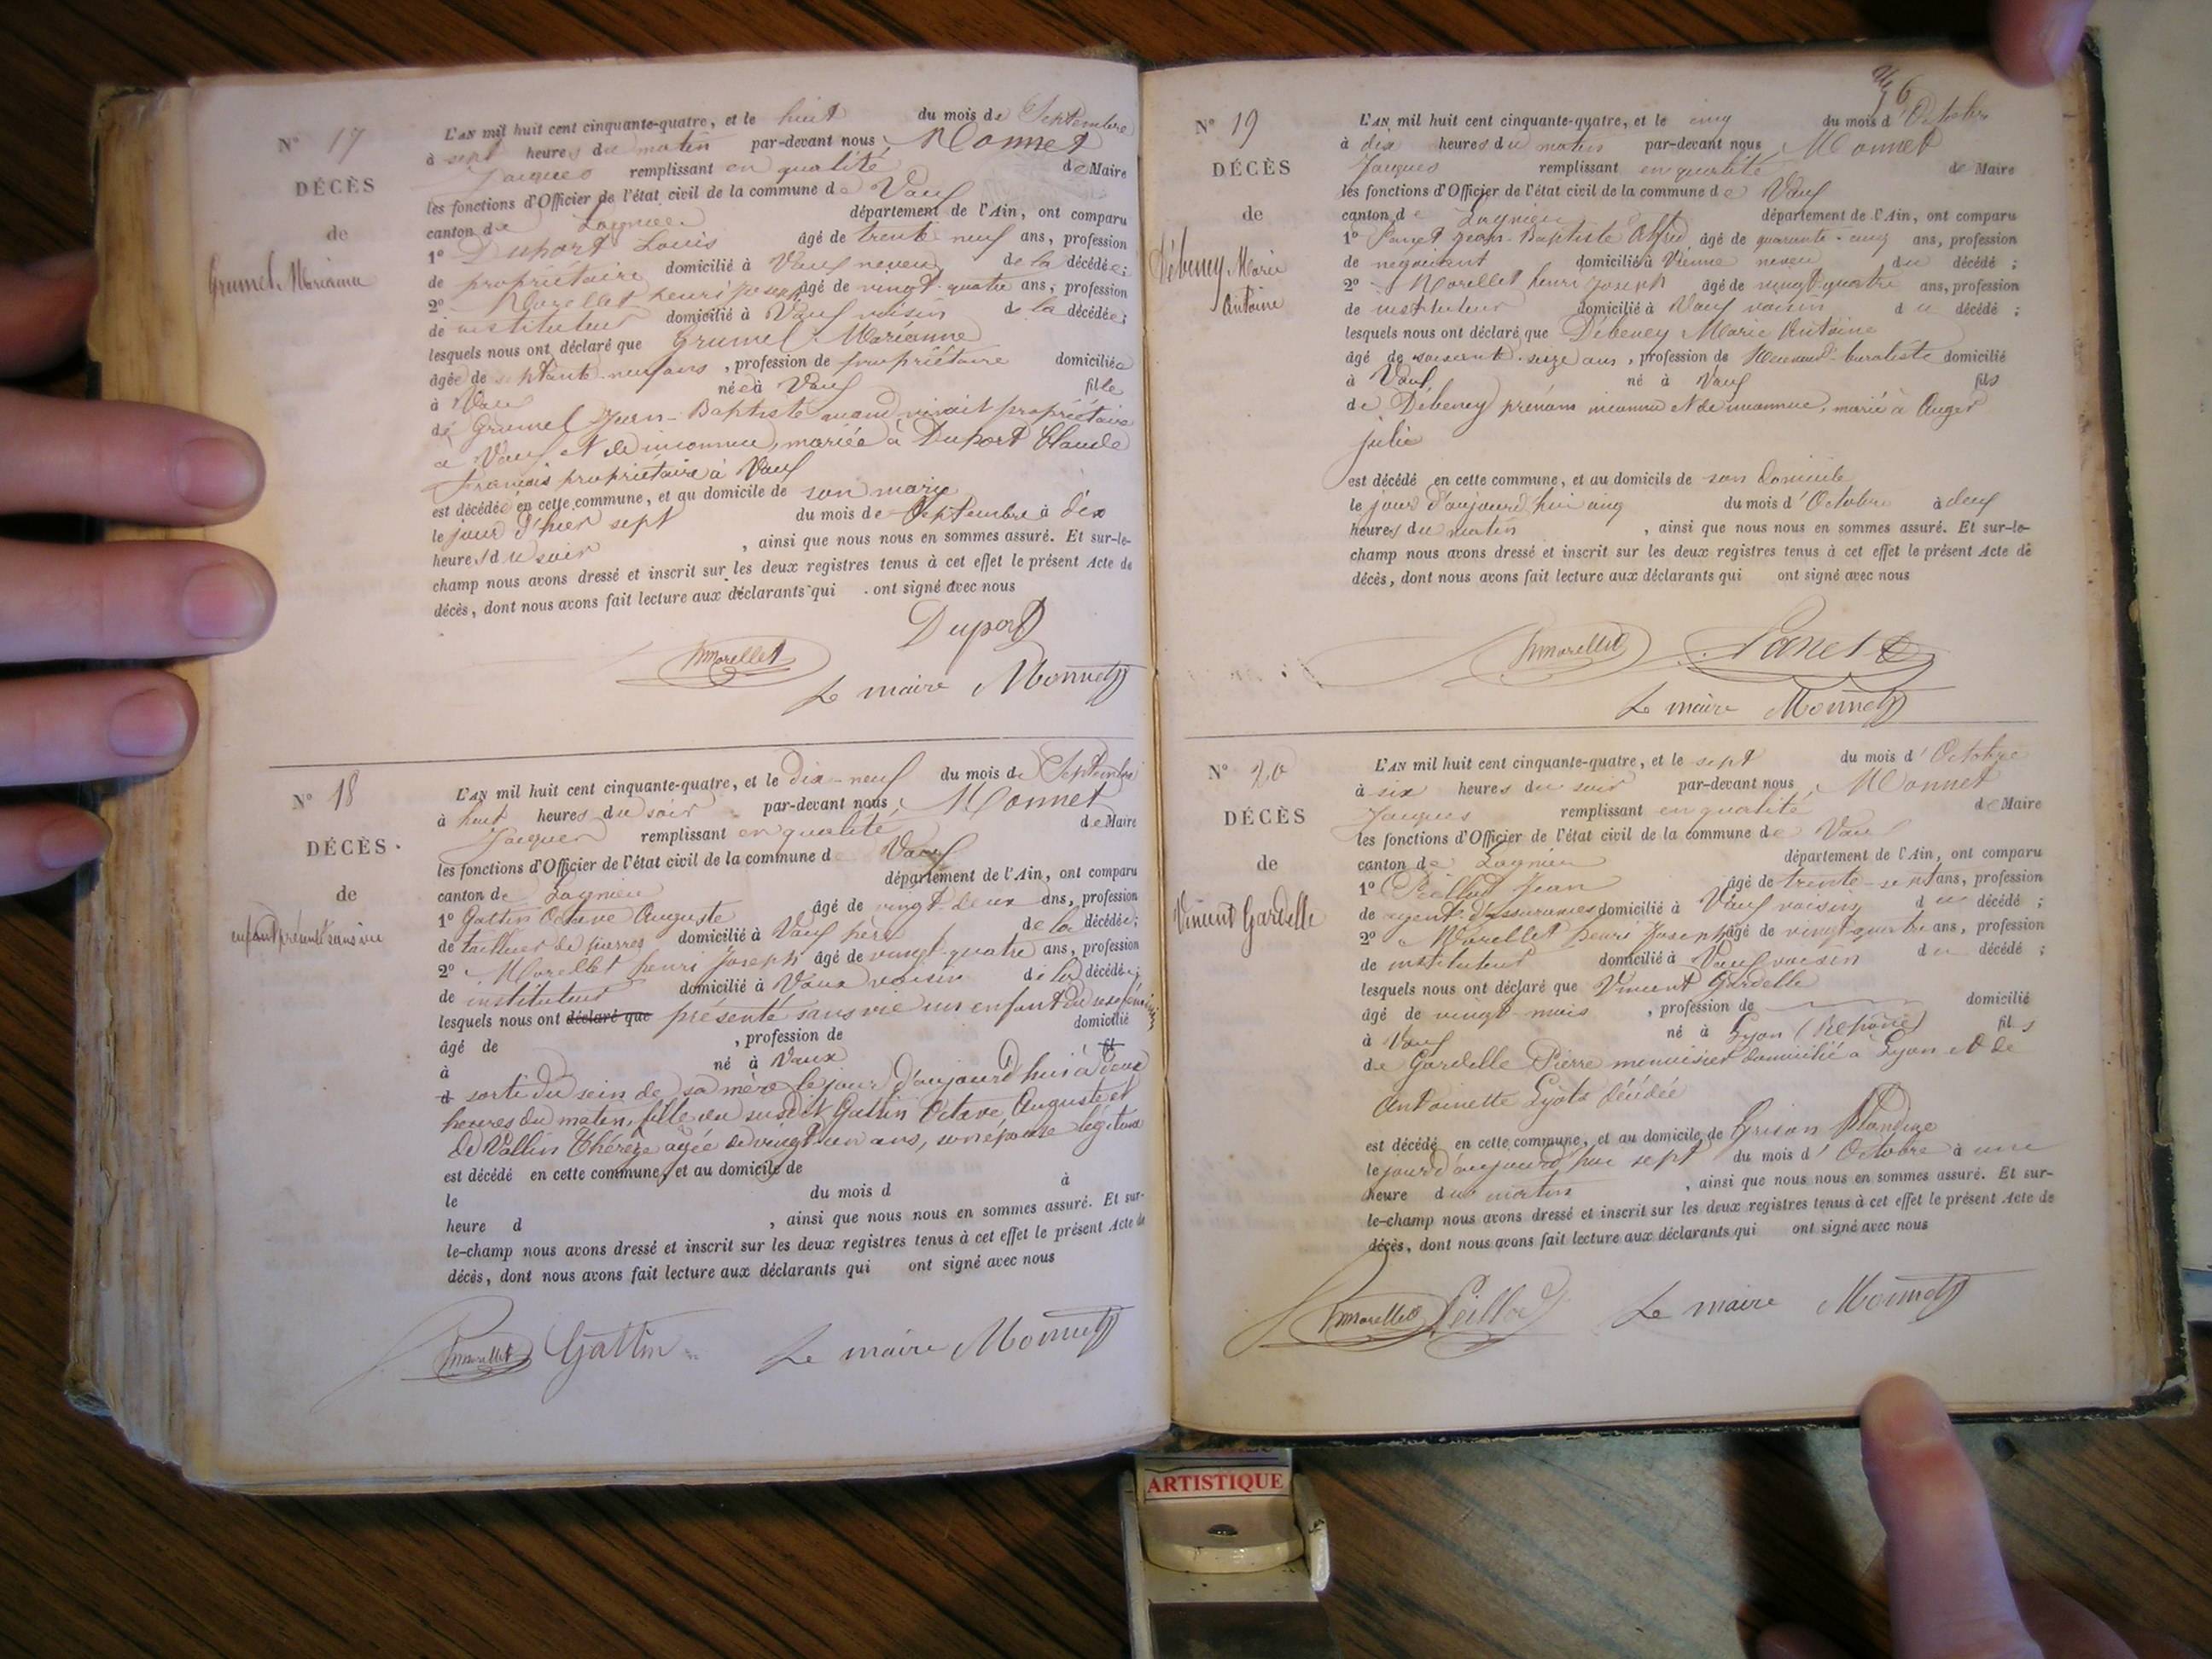 N° 17
DÉCÈS
de
Grumel Marianne
L'AN mil huit cent cinquante-quatre, et le huit du mois de Septembre
à sept heures du matin par-devant nous, Monnet
Jacques remplissant en qualité de Maire
les fonctions d'Officier de l'état civil de la commune de Vaux
canton de Lagnieu département de l'Ain, ont comparu
1° Duport Louis âgé de trente neuf ans, profession
de propriétaire domicilié à Vaux neveu de la décédée;
2° Morellet henri joseph âgé de vingt-quatre ans, profession
de instituteur domicilié à Vaux voisin de la décédée;
lesquels nous ont déclaré que Grumel Marianne
âgée de septante-neuf ans, profession de propriétaire domiciliée
à Vaux née à Vaux fille
de Grumel Jean-Baptiste quand vivait propriétaire
a Vaux et de inconnue, mariée à Duport Claude
françois propriétaire à Vaux
est décédée en cette commune, et au domicile de son mary
le jour d'hier sept du mois de Septembre à dix
heures du soir, ainsi que nous nous en sommes assuré. Et sur-le-
champ nous avons dressé et inscrit sur les deux registres tenus à cet effet le présent Acte de
décès, dont nous avons fait lecture aux déclarants qui ont signé avec nous
Duport
hmorellet
Le maire Monnet
N° 18
DÉCÈS
de
enfant présenté sans vie
L'AN mil huit cent cinquante-quatre, et le dix-neuf du mois de Septembre
à huit heures du soir par-devant nous, Monnet
Jacques remplissant en qualité de Maire
les fonctions d'Officier de l'état civil de la commune de Vaux
canton de Lagnieu département de l'Ain, ont comparu
1° Gattin Octave Auguste âgé de vingt-deux ans, profession
de tailleur de pierres domicilié à Vaux père de la décédée;
2° Morellet henri joseph âgé de vingt-quatre ans, profession
de instituteur domicilié à Vaux voisin de la décédée;
lesquels nous ont déclaré que présenté sans vie un enfant du sexe féminin
âgé de , profession de domicilié
à né à Vaux fil
d sorti du sein de sa mère le jour d'aujourd'hui à deux
heures du matin, fille du susdit Gattin Octave Auguste et
de Vallin Thérèze agée de vingt un ans, son épouse légitime
est décédé en cette commune, et au domicile de
le du mois d à
heure d , ainsi que nous nous en sommes assuré. Et sur-
le-champ nous avons dressé et inscrit sur les deux registres tenus à cet effet le présent Acte de
décès, dont nous avons fait lecture aux déclarants qui ont signé avec nous
hmorellet Gattin Le maire Monnet
6
N° 19
DÉCÈS
de
Débeney Marie
Antoine
L'AN mil huit cent cinquante-quatre, et le cinq du mois d'Octobre
à dix heures du matin par-devant nous, Monnet
Jacques remplissant en qualité de Maire
les fonctions d'Officier de l'état civil de la commune de Vaux
canton de Lagnieu département de l'Ain, ont comparu
1° Jean-Baptiste Alfred âgé de quarante-cinq ans, profession
de négociant domicilié à Vienne neveu du décédé;
2° Morellet henri joseph âgé de vingt-quatre ans, profession
de instituteur domicilié à Vaux voisin du décédé;
lesquels nous ont déclaré que Débeney Marie Antoine
âgé de soixante-seize ans, profession de buraliste domicilié
à Vaux né à Vaux fils
de Débeney prénom inconnu et de inconnue, marié à Auger
julie
est décédé en cette commune, et au domicile de son domicile
le jour d'aujourd'hui cinq du mois d'Octobre à deux
heures du matin, ainsi que nous nous en sommes assuré. Et sur-le-
champ nous avons dressé et inscrit sur les deux registres tenus à cet effet le présent Acte de
décès, dont nous avons fait lecture aux déclarants qui ont signé avec nous
hmorellet
Le maire Monnet
N° 20
DÉCÈS
de
Vincent Gardelle
L'AN mil huit cent cinquante-quatre, et le sept du mois d'Octobre
à six heures du soir par-devant nous, Monnet
Jacques remplissant en qualité de Maire
les fonctions d'Officier de l'état civil de la commune de Vaux
canton de Lagnieu département de l'Ain, ont comparu
1° Peillod Jean âgé de trente-sept ans, profession
de agent d'assurances domicilié à Vaux voisin du décédé;
2° Morellet henri Joseph âgé de vingt-quatre ans, profession
de instituteur domicilié à Vaux voisin du décédé;
lesquels nous ont déclaré que Vincent Gardelle
âgé de vingt mois, profession de domicilié
à Vaux né à Lyon (Rhône) fils
de Gardelle Pierre menuisier domicilié à Lyon et de
Antoinette décédée
est décédé en cette commune, et au domicile de Grisan Blandine
le jour d'aujourd'hui sept du mois d'Octobre à une
heure du matin, ainsi que nous nous en sommes assuré. Et sur-
le-champ nous avons dressé et inscrit sur les deux registres tenus à cet effet le présent Acte de
décès, dont nous avons fait lecture aux déclarants qui ont signé avec nous
hmorellet Peillod Le maire Monnet
ARTISTIQUE